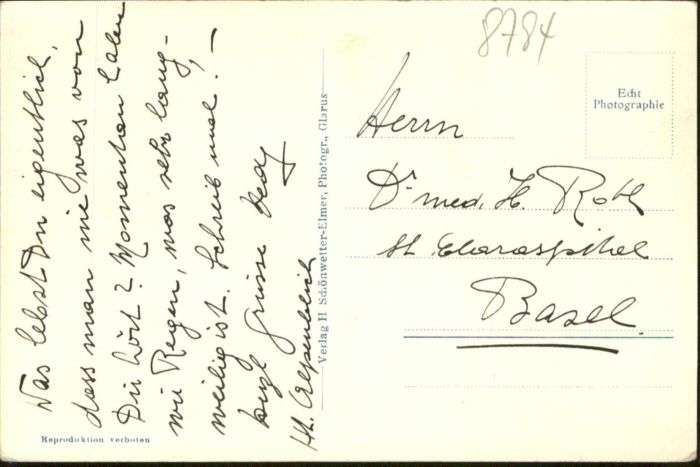 8784
Was lebst Du eigentlich,
dass man nie was von
Dir hört? Momentan haben
wir Regen, was sehr lang-
weilig ist. Schreib mal! –
herzl Grüsse Hedy
Verlag H Schönwetter-Elmer, Photogr., Glarus
Reproduktion verboten
Echt
Photographie
Herrn
Dr med. H. Roth
St. Claraspital
Basel